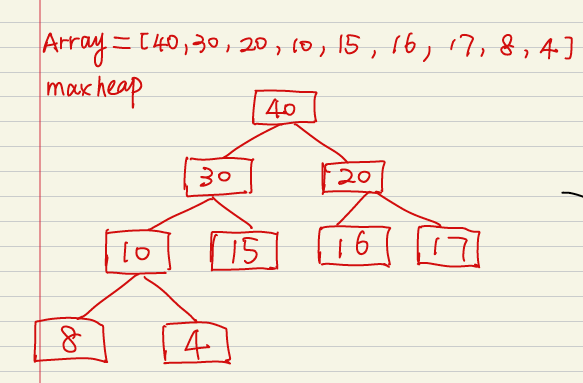 Array = [40, 30, 20, 10, 15, 16, 17, 8, 4]
maxheap
40
30 20
10 15 16 17
8 4